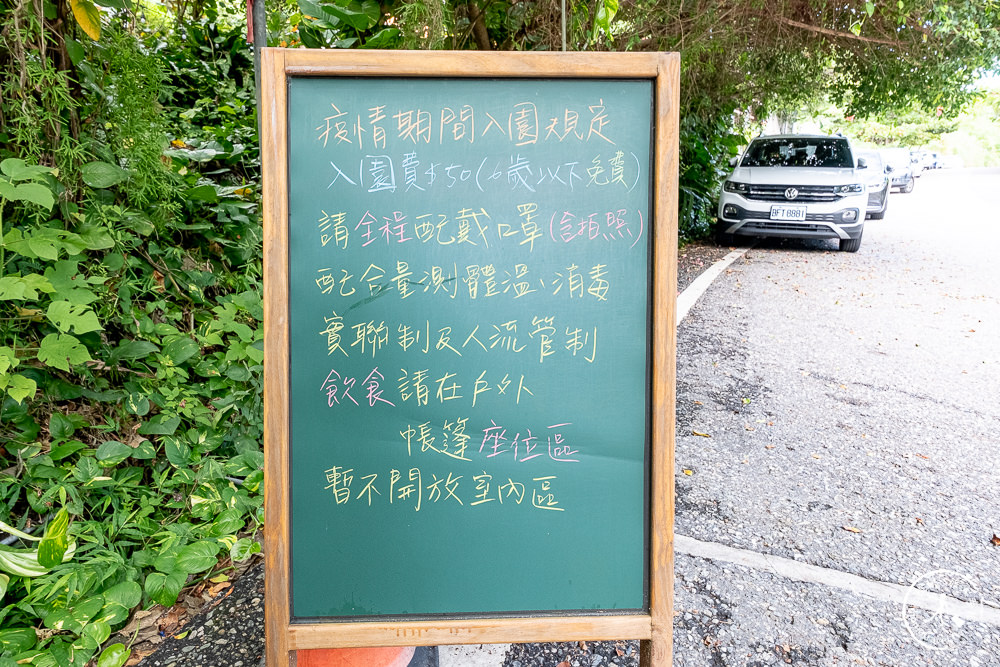 疫情期間入園規定
入園費$50(6歲以下免費)
請全程配戴口罩(含拍照)
配合量測體溫、消毒
實聯制及人流管制
飲食請在戶外
帳篷座位區
暫不開放室內區
BFT 8881